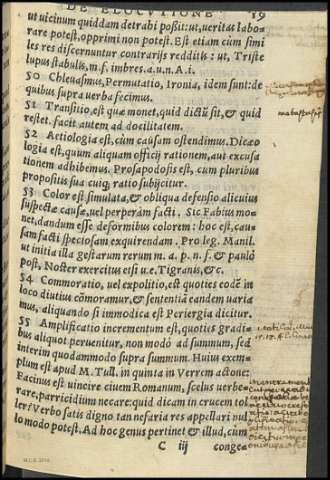 DE ELOCVTIONE. 19
ut uicinum quiddam detrahi poßit: ut, ueritas labo
rare potest, opprimi non potest. Est etiam cum simi
les res discernuntur contrarijs redditis: ut, Triste
lupus stabulis, m. f. imbres. a. u. n. A. i.
50 Chleuasmus, Permutatio, Ironia, idem sunt: de
quibus supra uerba fecimus.
51 Transitio, est quæ monet, quid dictũ sit, & quid
restet. facit autem ad docilitatem.
52 Aetiologia est, cùm causam ostendimus. Dicæo
logia est, quum aliquam officij rationem, aut excusa
tionem adhibemus. Prosapodosis est, cum pluribus
propositis sua cuiq; ratio subijcitur.
53 Color est simulata, & obliqua defensio alicuius
suspectæ causæ, uel perperàm facti. Sic Fabius mo-
net, dandum esse deformibus colorem: hoc est, cau-
sam facti speciosam exquirendam. Pro leg. Manil.
ut initia illa gestarum rerum m. a. p. n. f. & paulò
pòst, Noster exercitus etsi u. e. Tigranis, & c.
54 Commoratio, uel expolitio, est quoties eodẽ in
loco diutius cõmoramur, & sententiã eandem uaria
mus, aliquando si immodica est Periergia dicitur.
55 Amplificatio incrementum est, quoties gradi-
bus aliquot peruenitur, non modò ad summum, sed
interim quodammodo supra summum. Huius exem-
plum est apud M. Tull. in quinta in Verrem actione:
Facinus est uincire ciuem Romanum, scelus uerbe-
rare, parricidium necare: quid dicam in crucem tol
ler? Verbo satis digno tan nefaria res appellari nul
lo modo potest. Ad hoc genus pertinet & illud, cùm
C iij congea